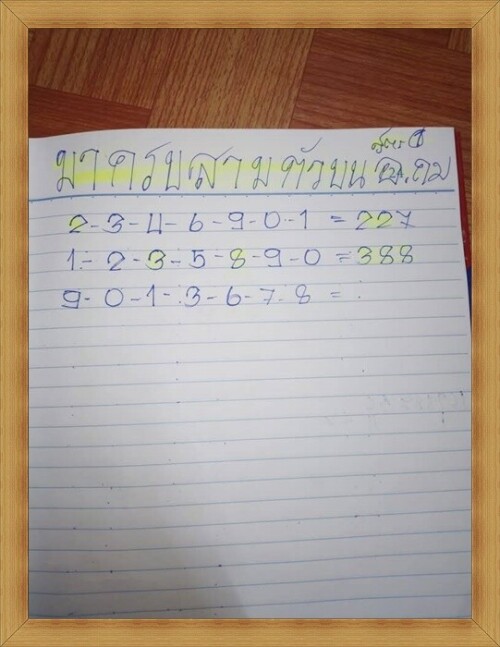 สูตร 1
มาครบสามตัวบน อ.ถม
2-3-4-6-9-0-1 = 227
1-2-3-5-8-9-0 = 388
9-0-1-3-6-7-8 = .